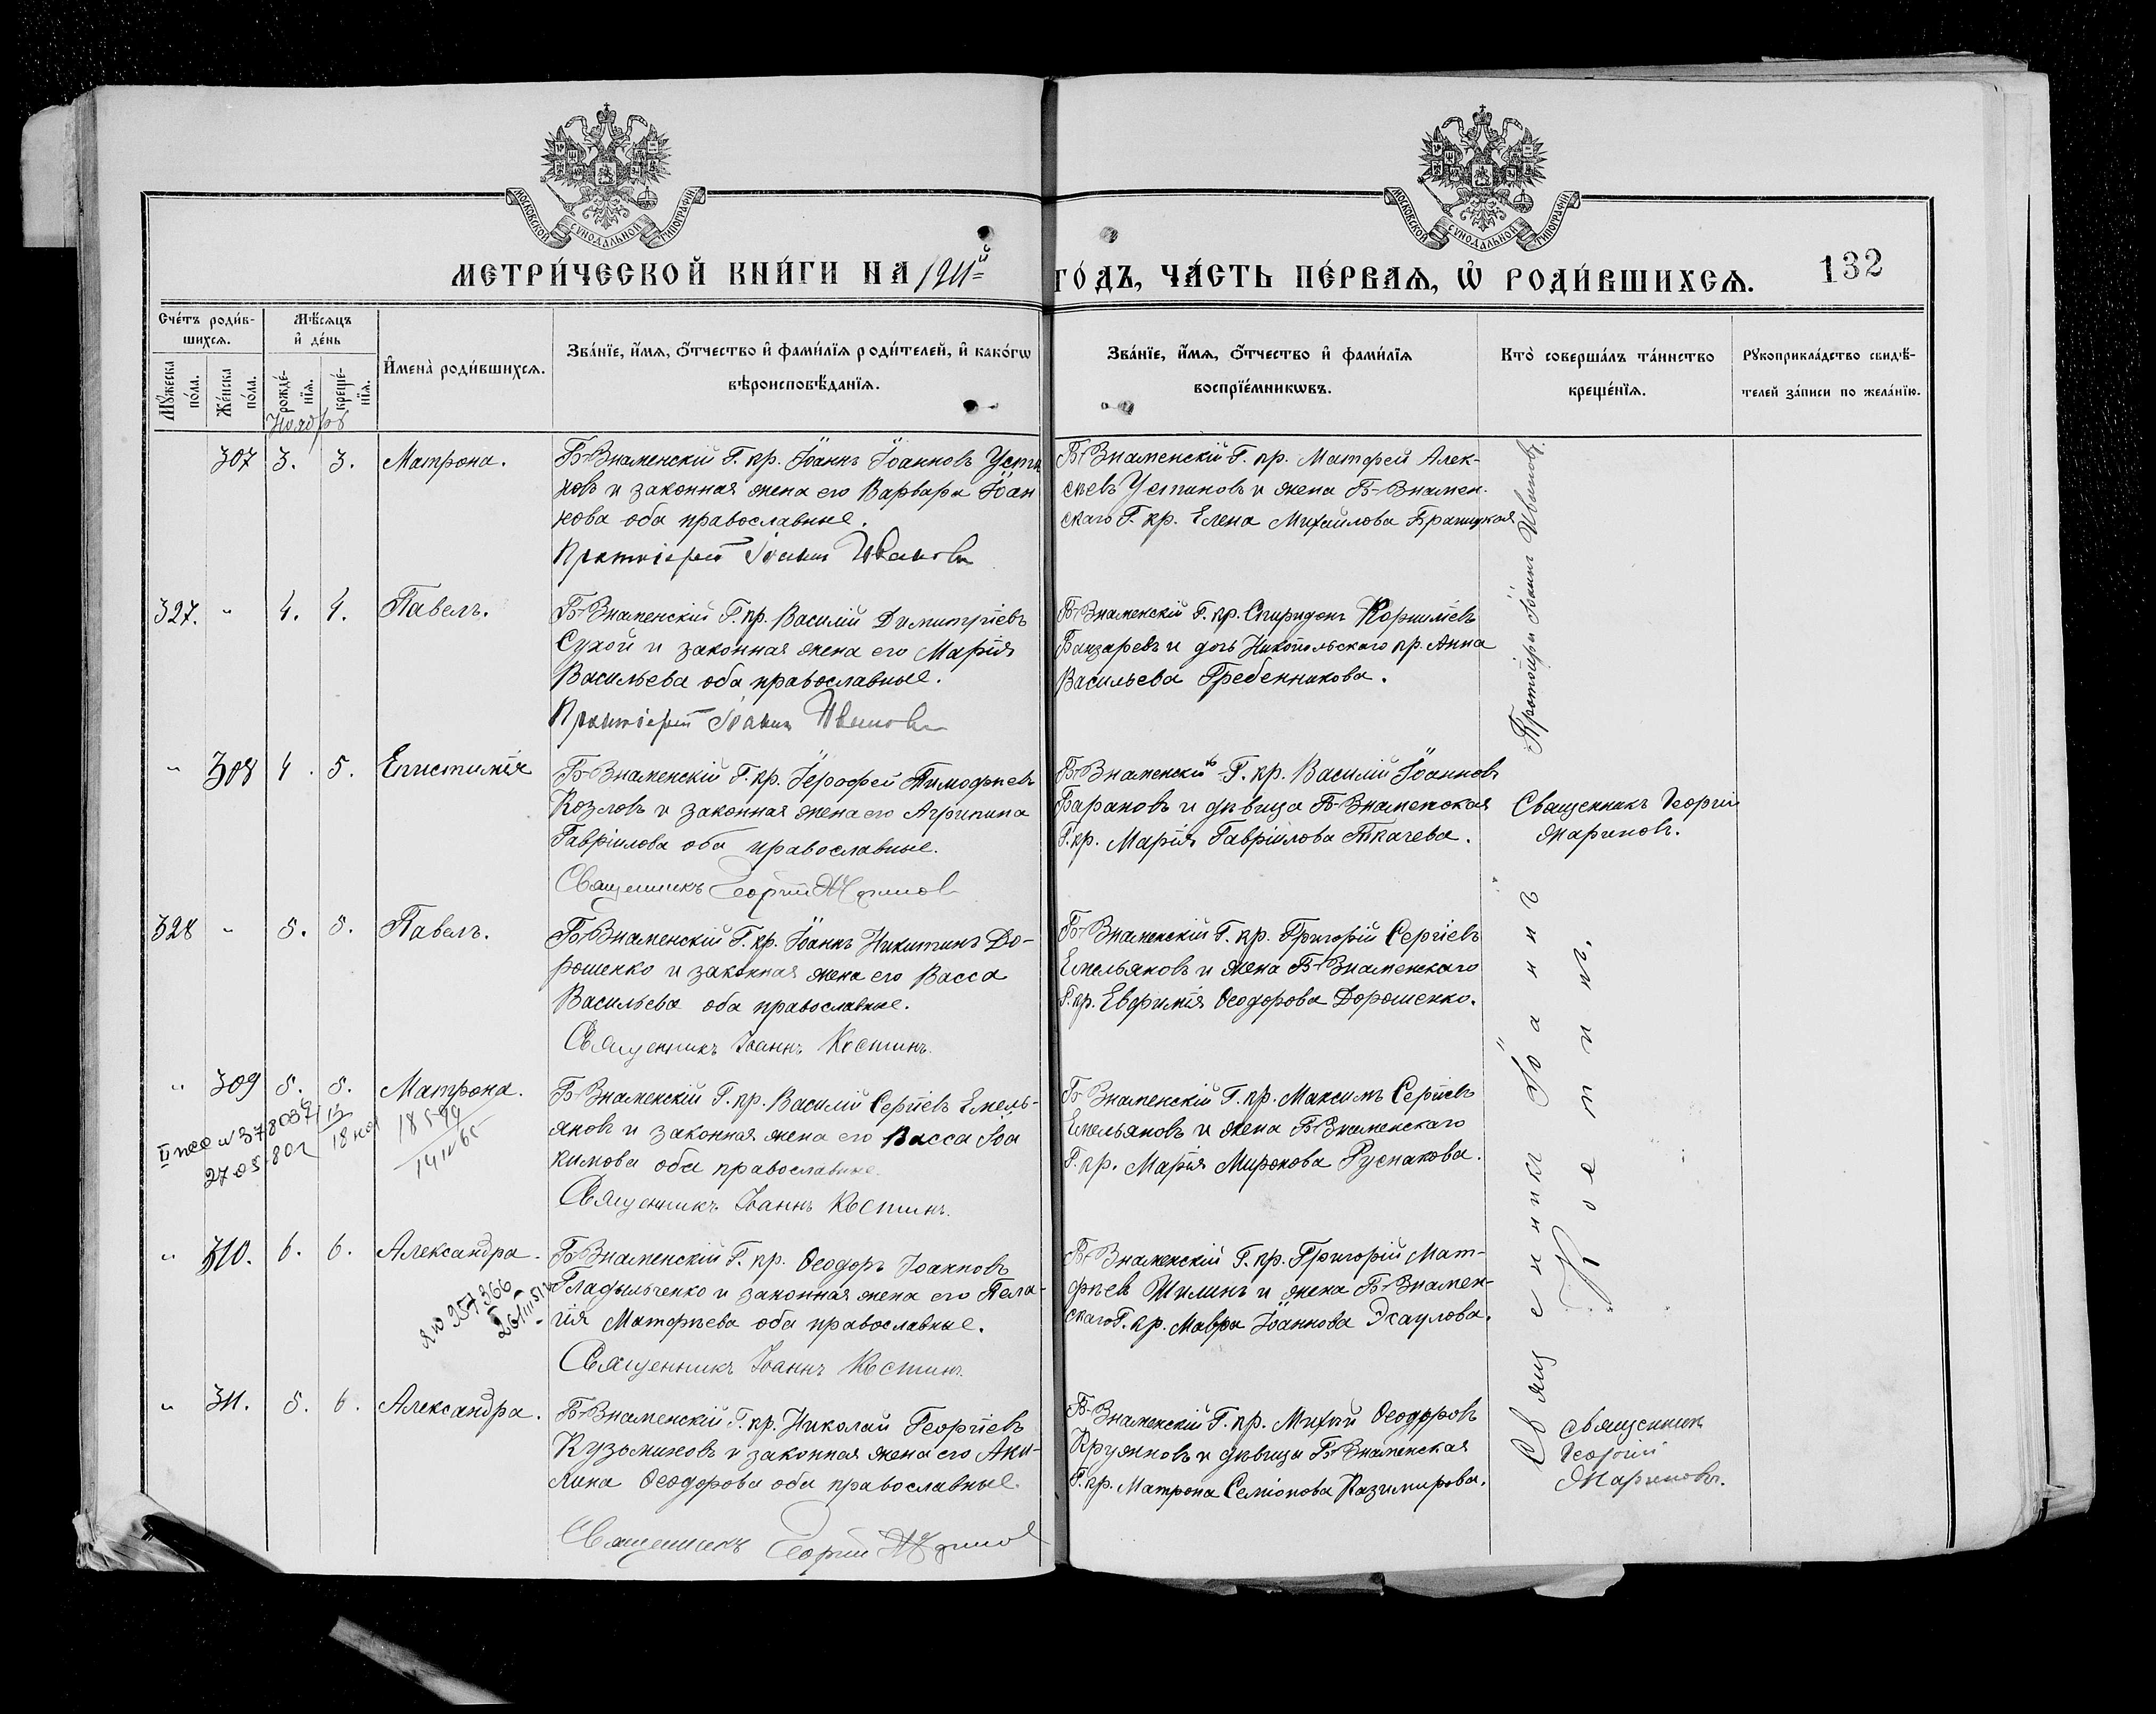 МОСКОВСКОЙ СѴНОДАЛЬНОЙ ТИПОГРАФІИ
МОСКОВСКОЙ СѴНОДАЛЬНОЙ ТИПОГРАФІИ
МЕТРИ́ЧЕСКОЙ КНИ́ГИ НА 1911й
ГО́ДЪ, ЧА́СТЬ ПЕ́РВАѦ, Ѡ҆ РОДИ́ВШИХСѦ.
132
Сче́тъ роди́в-
шихсѧ.
Мꙋ́жеска по́ла.
Же́нска по́ла.
Мѣ́сѧцъ
и҆ де́нь
рожде́-
нїѧ.
креще́-
нїѧ.
И҆мена̀ роди́вшихсѧ.
Зва́нїе, и҆́мѧ, ѻ҆́тчество и҆ фами́лїѧ роди́телей, и҆ како́гѡ
вѣроисповѣ́данїѧ.
Зва́нїе, и҆́мѧ, ѻ҆́тчество и҆ фами́лїѧ
воспрїе́мникѡвъ.
Кто̀ соверша́лъ та́инство
креще́нїѧ.
Рꙋкоприкла́дство свидѣ́-
телей за́писи по жела́нїю.
Ноябрь
307 3. 3. Матрона.
Б-Знаменскій Г. кр. Іоаннъ Іоанновъ Усти
новъ и законная жена его Варвара Іоан
нова оба православные.
Протоіерей Іоаннъ Ивановъ
Б-Знаменскій Г. кр. Матфей Алек-
сѣевъ Устиновъ и жена Б-Знамен-
скаго Г. кр. Елена Михайлова
Протоіерей Іоаннъ Ивановъ.
327. " 4. 4. Павелъ.
Б-Знаменскій Г. кр. Василій Димитріевъ
Сухой и законная жена его Марія
Васильева оба православные.
Протоіерей Іоаннъ Ивановъ
Б-Знаменскій Г. кр. Спиридонъ Корниліевъ
Банзаревъ и дочь Никопольскаго кр. Анна
Васильева Гребенникова.
" 308 4. 5. Епистимія
Б-Знаменскій Г. кр. Іерофей Тимофѣевъ
Козловъ и законная жена его Агрипина
Гавріилова оба православные.
Священникъ Георгій Мариновъ
Б-Знаменскій Г. кр. Василій Іоанновъ
Барановъ и дѣвица Б-Знаменская
Г. кр. Марія Гавріилова Ткачева.
Священникъ Георгій
Мариновъ.
328 " 5. 5. Павелъ.
Б-Знаменскій Г. кр. Іоаннъ Никитинъ До-
рошенко и законная жена его Васса
Васильева оба православные.
Священникъ Іоаннъ Костинъ.
Б-Знаменскій Г. кр. Григорій Сергіевъ
Емельяновъ и жена Б-Знаменскаго
Г. кр. Евфимія Ѳеодорова Дорошенко.
Священникъ Іоаннъ
" 309 5. 5. Матрона.
Б-Знаменскій Г. кр. Василій Сергіевъ Емель-
яновъ и законная жена его Васса Іоа
кимова оба православные.
Священникъ Іоаннъ Костинъ.
Б-Знаменскій Г. кр. Максимъ Сергіевъ
Емельяновъ и жена Б-Знаменскаго
Г. кр. Марія Миронова Руснакова.
" 310. 6. 6. Александра.
Б-Знаменскій Г. кр. Ѳеодоръ Іоанновъ
Гладильченко и законная жена его Пела-
гія Матфѣева оба православные.
Священникъ Іоаннъ Костинъ.
Б-Знаменскій Г. кр. Григорій Мат-
фѣевъ Шилинъ и жена Б-Знамен-
скаго Г. кр. Мавра Іоаннова Эсаулова.
" 311. 5. 6. Александра.
Б-Знаменскій Г. кр. Николай Георгіевъ
Кузьминовъ и законная жена его Аки-
лина Ѳеодорова оба православные.
Священникъ Георгій Мариновъ
Б-Знаменскій Г. кр. Михаилъ Ѳеодоровъ
и дѣвица Б-Знаменская
Г. кр. Матрона Семіонова Казимирова.
Священникъ
Георгій
Мариновъ.